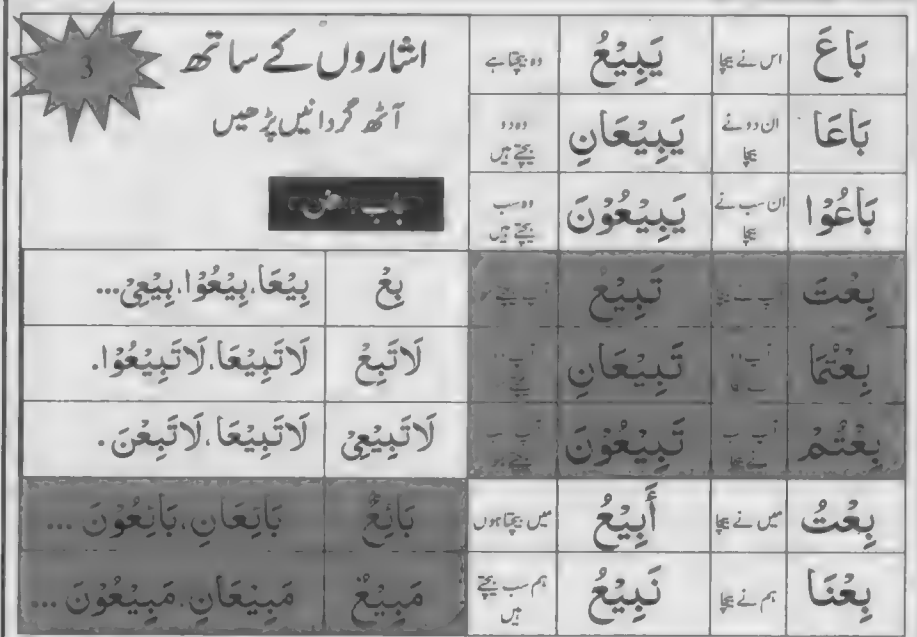 3
اشاروں کے ساتھ
آٹھ گردانیں پڑھیں
بَاعَ اس نے بیچا يَبِيْعُ وہ بیچتا ہے
بَاعَا ان دو نے بیچا يَبِيْعَانِ وہ دو بیچتے ہیں
بَاعُوْا ان سب نے بیچا يَبِيْعُوْنَ وہ سب بیچتے ہیں
بِعْتَ تَبِيْعُ
بِعْتُمَا تَبِيْعَانِ
بِعْتُمْ تَبِيْعُوْنَ
بِعْتُ میں نے بیچا أَبِيْعُ میں بیچتا ہوں
بِعْنَا ہم نے بیچا نَبِيْعُ ہم سب بیچتے ہیں
بِعْ بِيْعَا، بِيْعُوْا، بِيْعِيْ...
لَاتَبِعْ لَاتَبِيْعَا، لَاتَبِيْعُوْا.
لَاتَبِيْعِيْ لَاتَبِيْعَا، لَاتَبِعْنَ.
بَائِعٌ بَائِعَانِ، بَائِعُوْنَ ...
مَبِيْعٌ مَبِيْعَانِ، مَبِيْعُوْنَ ...